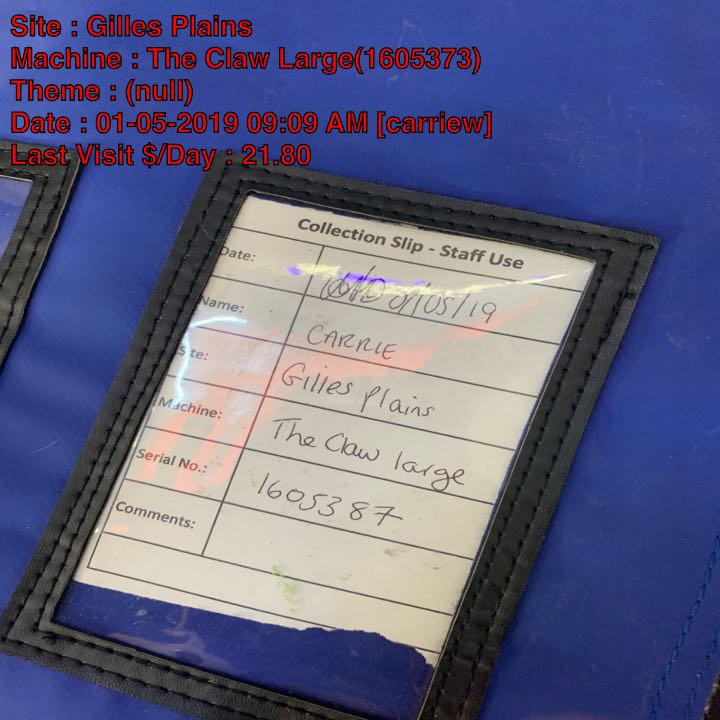 Site : Gilles Plains
Machine : The Claw Large(1605373)
Theme : (null)
Date : 01-05-2019 09:09 AM [carriew]
Last Visit $/Day : 21.80
Collection Slip - Staff Use
Date: 01/05/19
Name: CARRIE
Site: Gilles plains
Machine: The Claw large
Serial No.: 1605387
Comments: